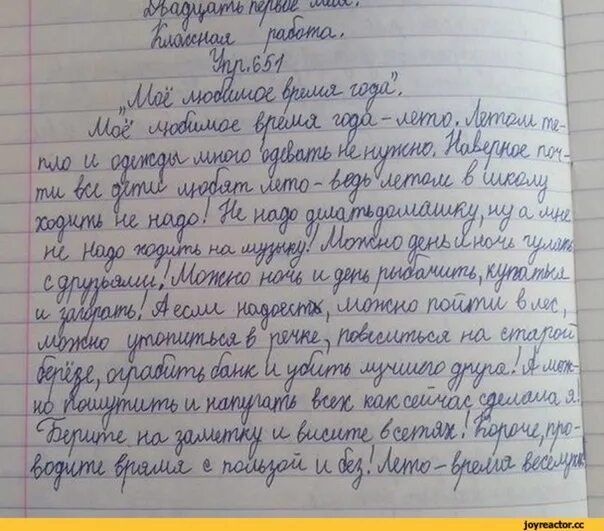 Двадцать первое мая.
Классная работа.
Упр.651
„Моё любимое время года".
Моё любимое время года – лето. Летом те-
пло и одежды много одевать не нужно. Наверное поч-
ти все дети любят лето – ведь летом в школу
ходить не надо! Не надо делать домашку, ну а мне
не надо ходить на музыку! Можно день и ночь гулять
с друзьями! Можно ночь и день рыбачить, купаться
и загорать! А если надоест, можно пойти в лес,
можно утопиться в речке, повеситься на старой
берёзе, ограбить банк и убить лучшего друга! А мож-
но пошутить и напугать всех как сейчас сделала я!
Берите на заметку и висите в сетях! Короче, про-
водите врямя с пользой и без! Лето – время веселущее
joyreactor.cc